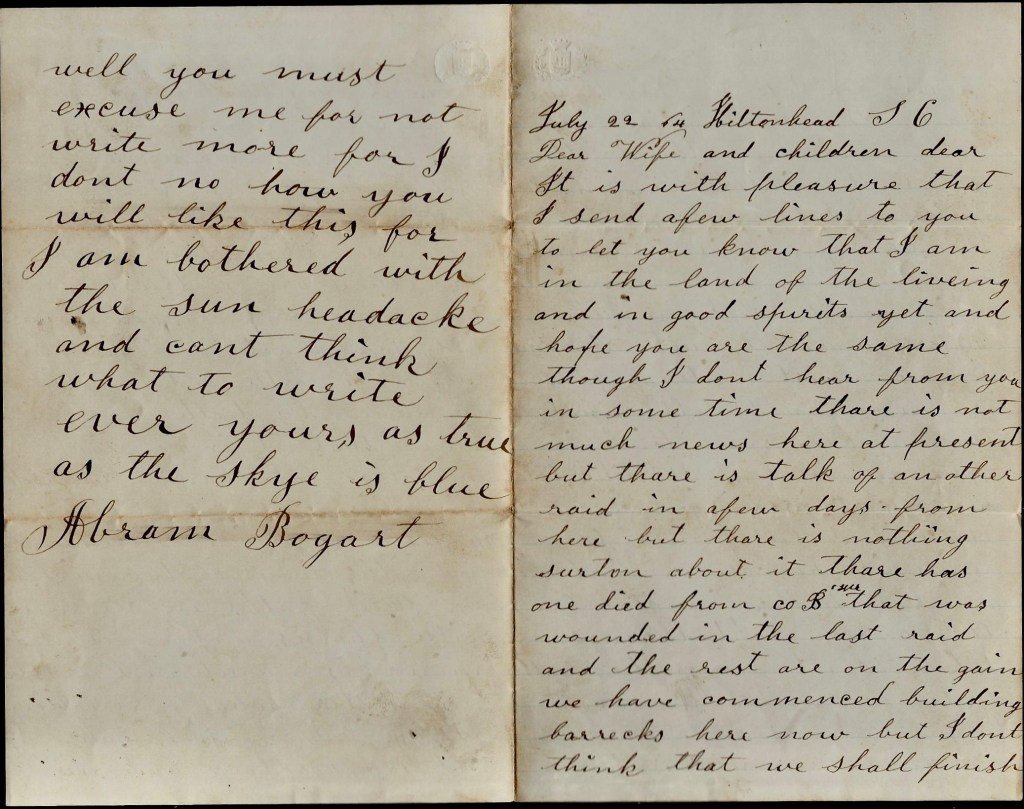 well you must
excuse me for not
write more for I
dont no how you
will like this for
I am bothered with
the sun headacke
and cant think
what to write
ever yours as true
as the skye is blue
Abram Bogart
July 22 64 Hiltonhead S C
Dear Wife and children dear
It is with pleasure that
I send afew lines to you
to let you know that I am
in the land of the liveing
and in good spirits yet and
hope you are the same
though I dont hear from you
in some time thare is not
much news here at present
but thare is talk of an other
raid in afew days from
here but thare is nothing
surton about it thare has
one died from co B that was
wounded in the last raid
and the rest are on the gain
we have commenced building
barrecks here now but I dont
think that we shall finish